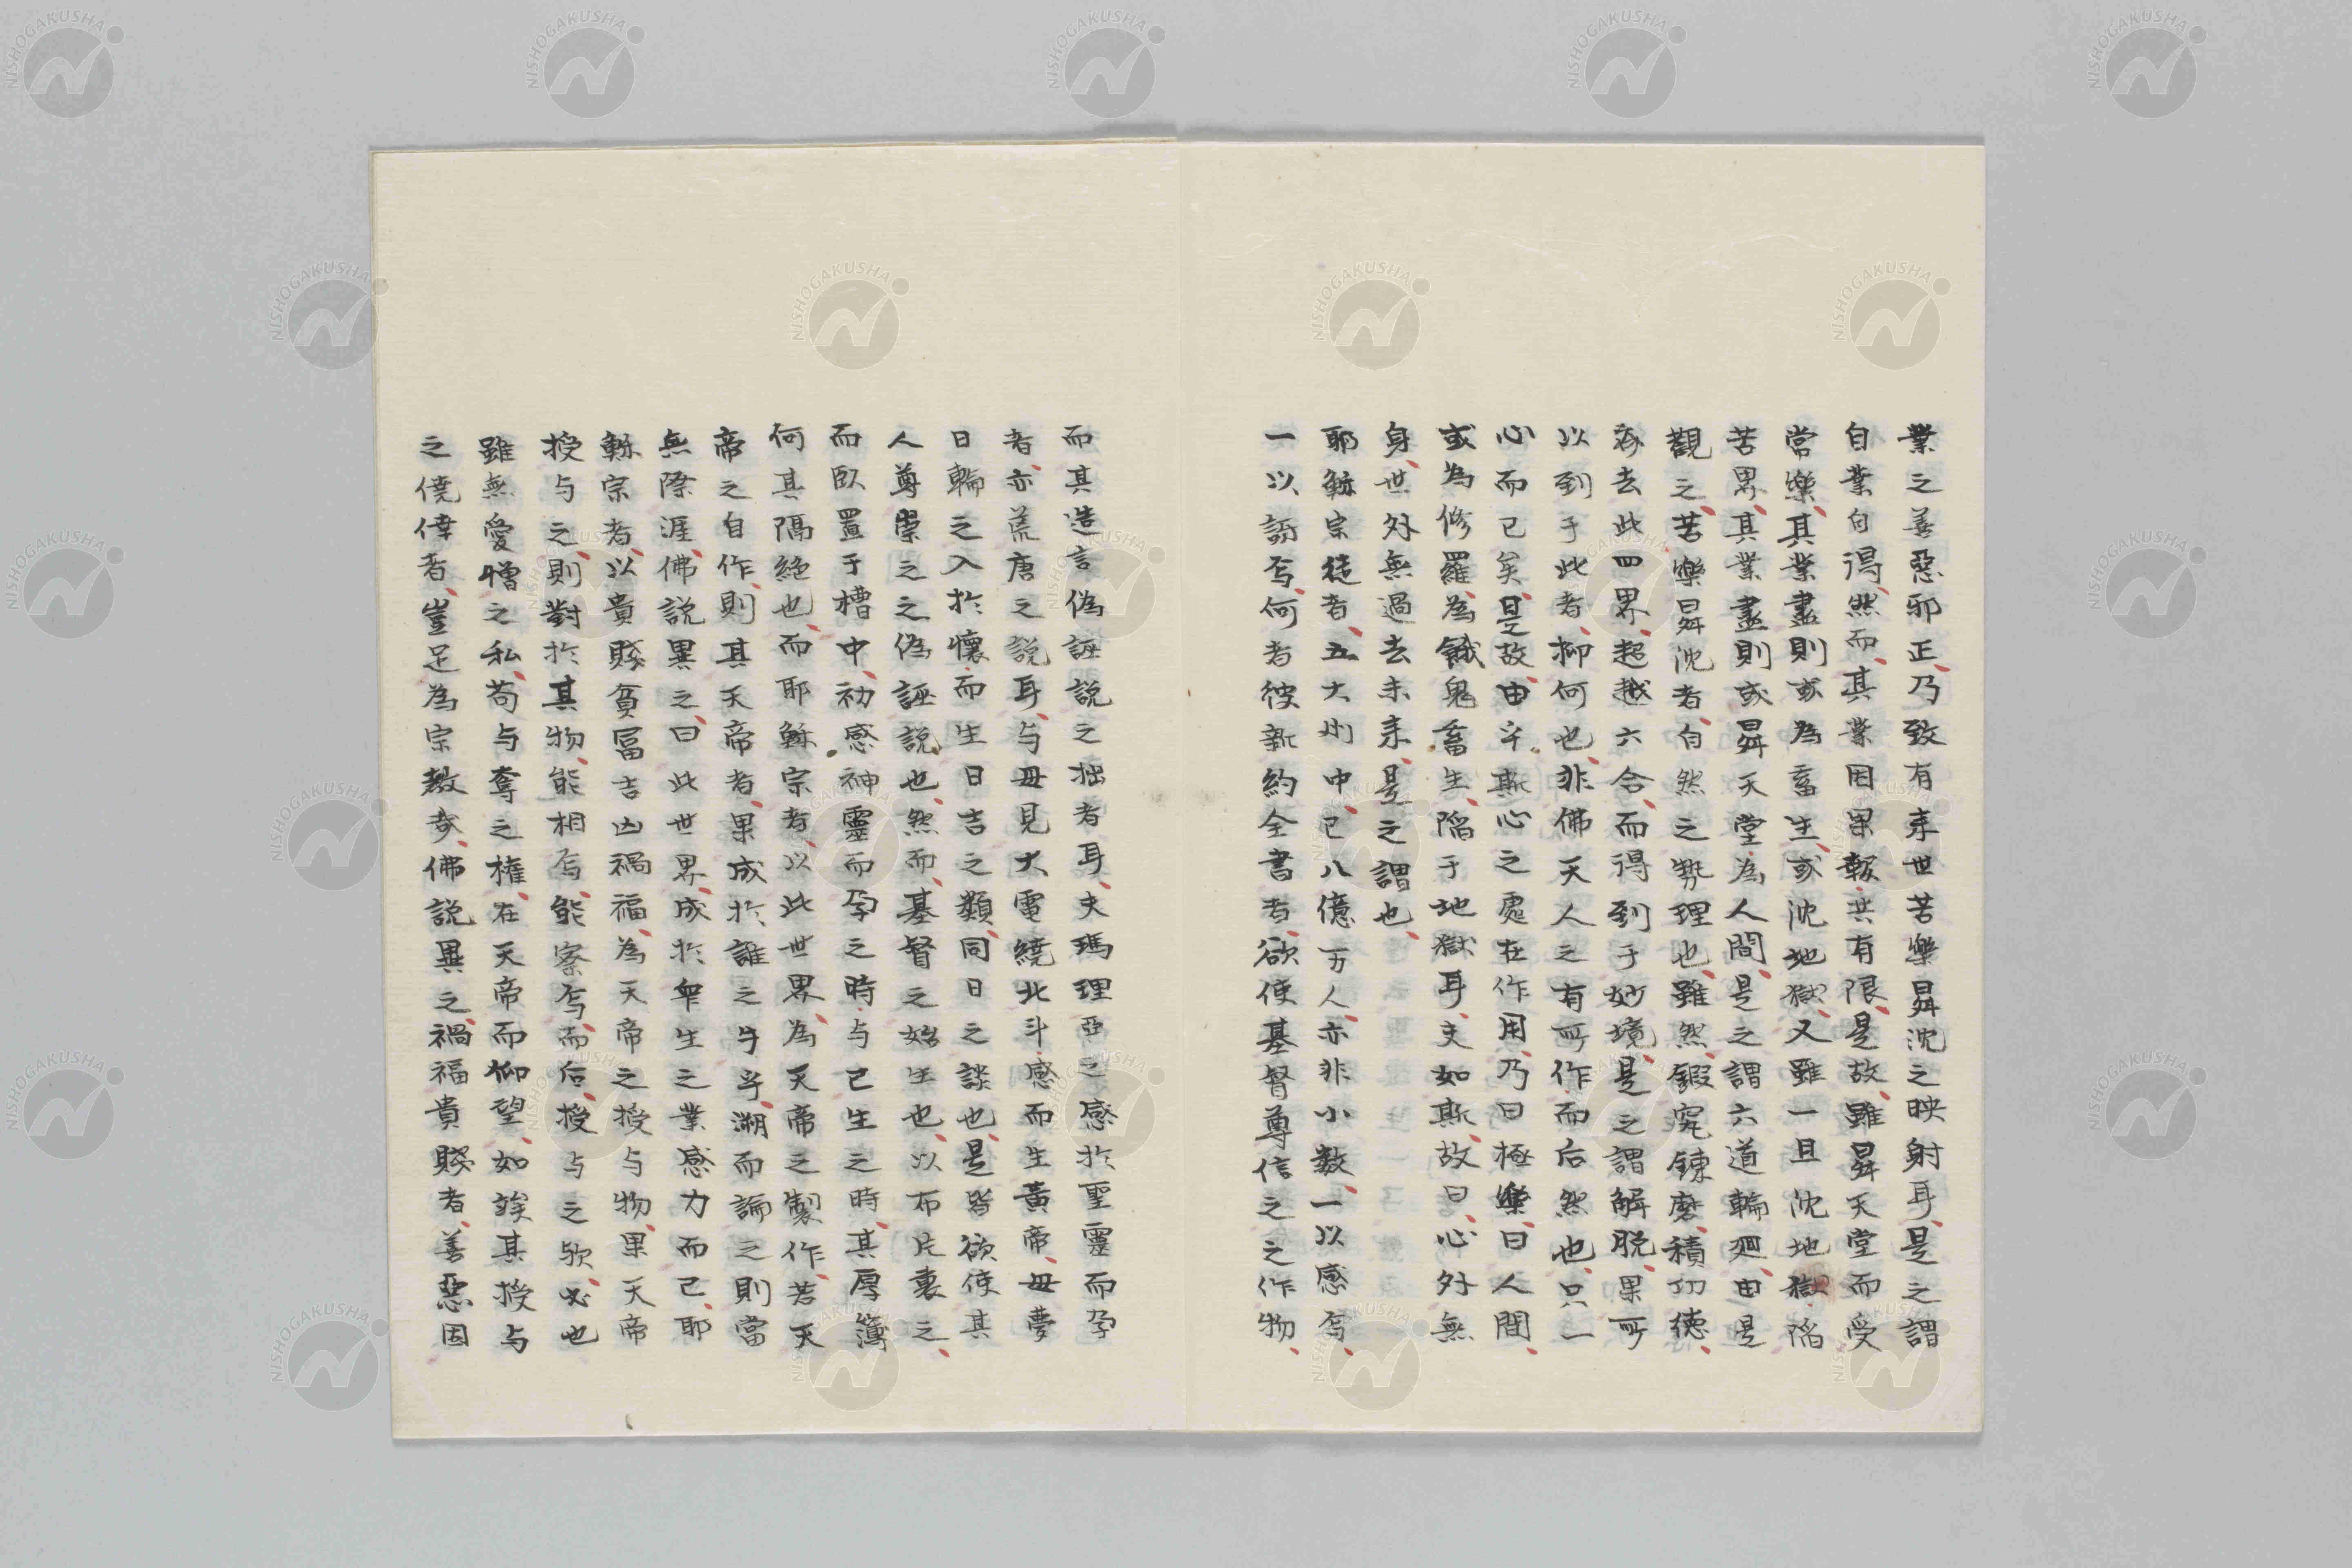 業之善惡邪正乃致有来世苦樂昇沈之映射耳是之謂
自業自得然而其業因果報共有限是故雖昇天堂而受
常樂其業盡則或為畜生或沈地獄又雖一旦沈地獄陷
苦界其業盡則或昇天堂為人間是之謂六道輪廻由是
觀之苦樂昇沈者自然之勢理也雖然鍜究錬磨積功徳
去此四界超越六合而得到于妙境是之謂解脱果所
以到于此者抑何也非佛天人之有所作而后然也只一
心而已矣是故由乎斯心之處在作用乃曰極樂曰人間
或為修羅為餓鬼畜生陷于地獄耳夫如斯故曰心外無
身世外無過去未来是之謂也
耶穌宗徒者五大州中已八億万人亦非小数一以感焉
一以訝焉何者彼新約全書者欲使基督尊信之之作物
而其造言偽誣説之拙者耳夫瑪理亞之感於聖靈而孕
者亦荒唐之説耳与母見大電繞北斗感而生黄帝母夢
日輪之入於懷而生日吉之類同日之談也是皆欲使其
人尊崇之之偽誣説也然而基督之始生也以布片裹之
而臥置于槽中初感神靈而孕之時与已生之時其厚簿
何其隔絶也而耶穌宗者以此世界為天帝之製作若天
帝之自作則其天帝者果成於誰之手乎溯而論之則當
無際涯佛説異之曰此世界成於衆生之業感力而已耶
穌宗者以貴賤貧冨吉凶禍福為天帝之授与物果天帝
授与之則對於其物能相焉能察焉而后授与之欤必也
雖無愛憎之私苟与奪之權在天帝而仰望如俟其授与
之僥倖者豈足為宗教哉佛説異之禍福貴賤者善惡因
NISHOGAKUSHA